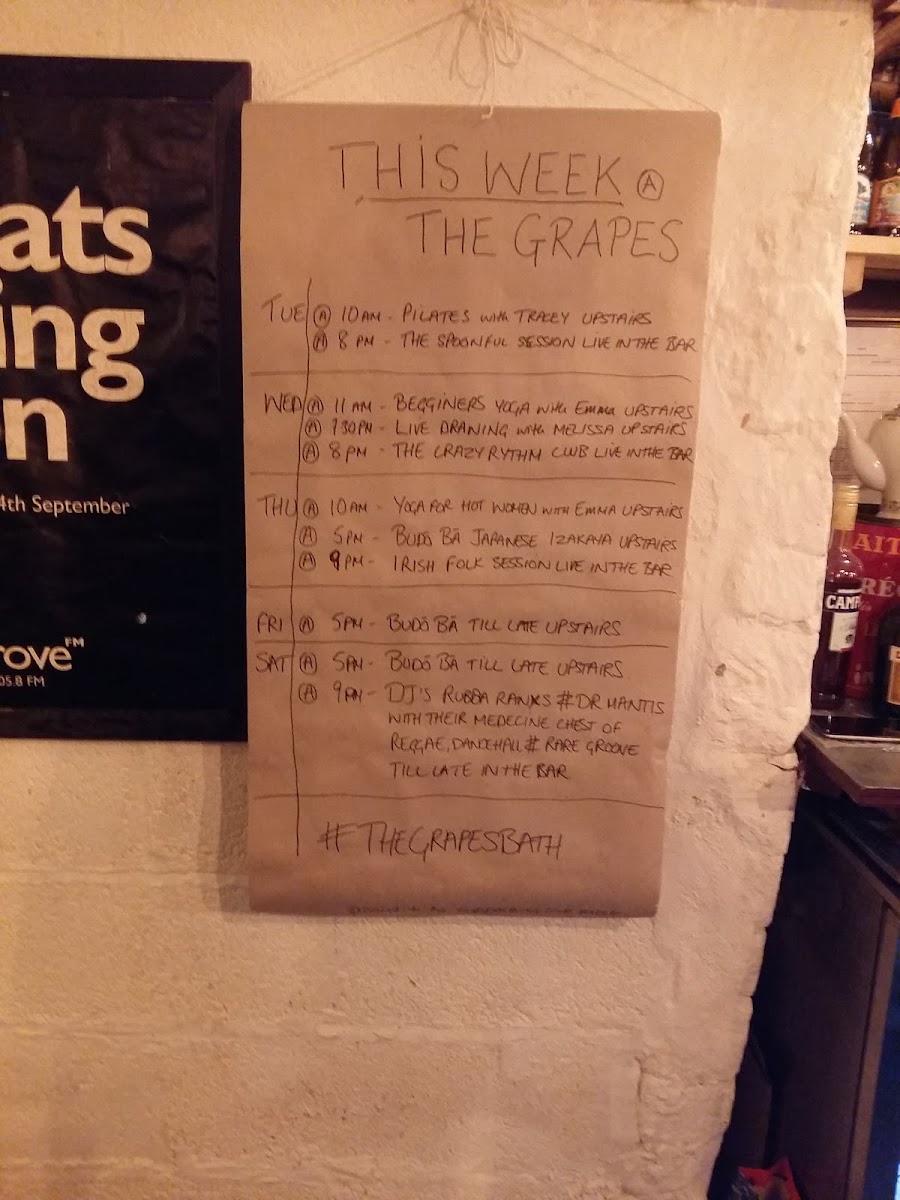 THIS WEEK @
THE GRAPES
TUE @ 10AM - PILATES WITH TRACEY UPSTAIRS
@ 8 PM - THE SPOONFUL SESSION LIVE IN THE BAR
WED @ 11AM - BEGGINERS YOGA WITH EMMA UPSTAIRS
@ 730PM - LIVE DRANING WITH MELISSA UPSTAIRS
@ 8PM - THE CRAZY RYTHM CLUB LIVE IN THE BAR
THU @ 10AM - YOGA FOR HOT WOMEN WITH EMMA UPSTAIRS
@ 5PM - BUDŌ BĀ JAPANESE IZAKAYA UPSTAIRS
@ 9PM - IRISH FOLK SESSION LIVE IN THE BAR
FRI @ 5PM - BUDŌ BĀ TILL LATE UPSTAIRS
SAT @ 5PM - BUDŌ BĀ TILL LATE UPSTAIRS
@ 9PM - DJ'S RUBBA RANKS # DR MANTIS
WITH THEIR MEDECINE CHEST OF
REGGAE, DANCEHALL # RARE GROOVE
TILL LATE IN THE BAR
#THEGRAPESBATH
ats
ing
n
4th September
rove FM
05.8 FM
CAMP
AIT
RÉ